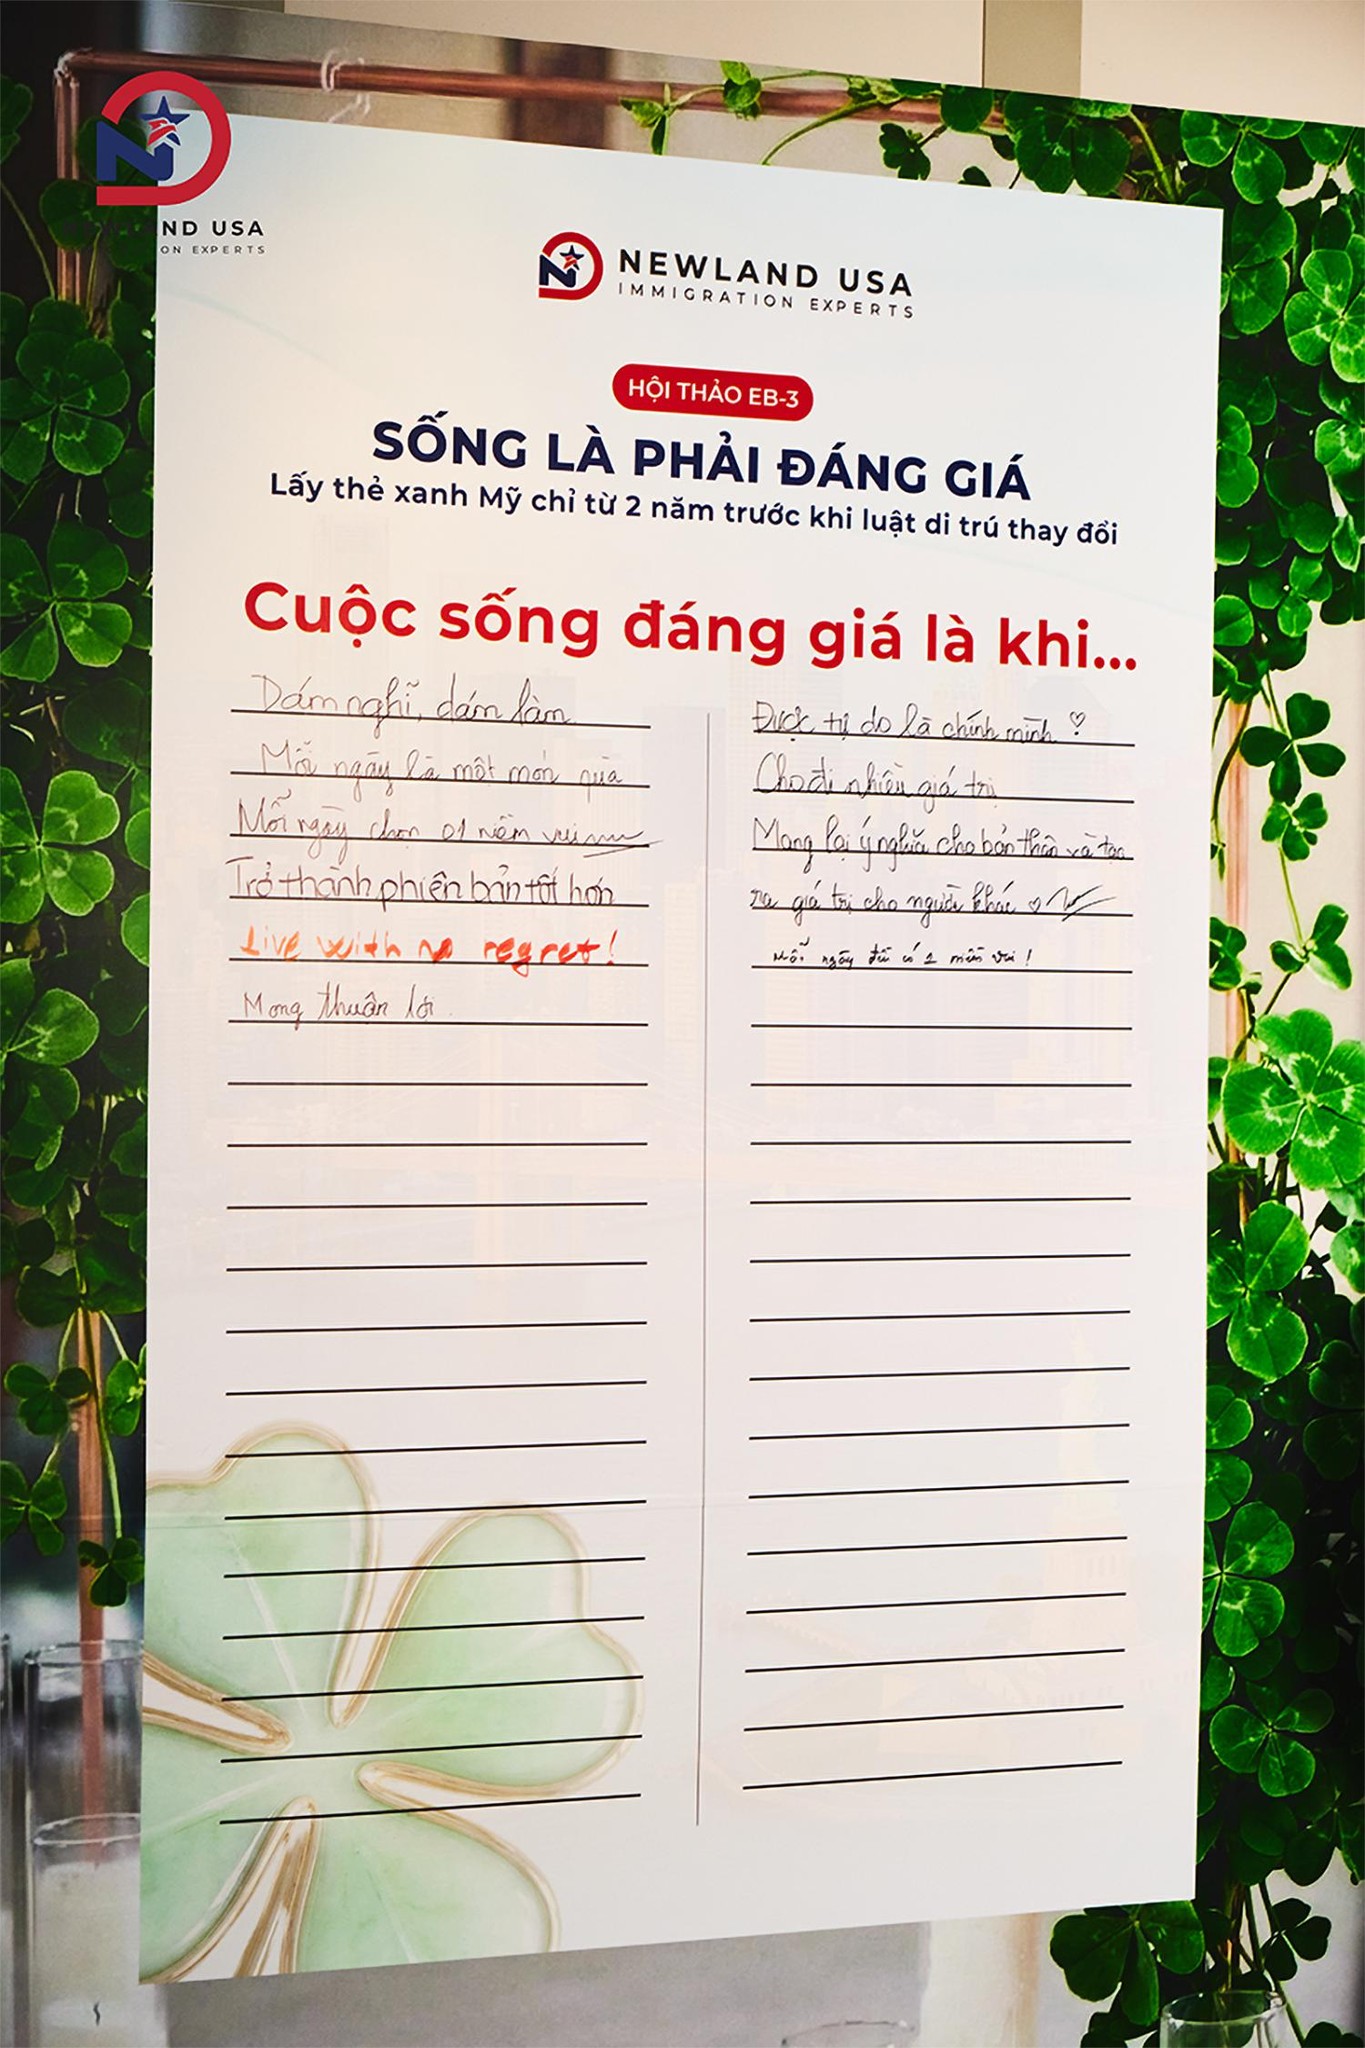 ND USA
ON EXPERTS
NEWLAND USA
IMMIGRATION EXPERTS
HỘI THẢO EB-3
SỐNG LÀ PHẢI ĐÁNG GIÁ
Lấy thẻ xanh Mỹ chỉ từ 2 năm trước khi luật di trú thay đổi
Cuộc sống đáng giá là khi...
Dám nghĩ, dám làm
Mỗi ngày là một món quà
Mỗi ngày chọn 01 niềm vui
Trở thành phiên bản tốt hơn
Live with no regret!
Mong thuận lợi.
Được tự do là chính mình ♡
Cho đi nhiều giá trị
Mang lại ý nghĩa cho bản thân và tạo
ra giá trị cho người khác ♡
Mỗi ngày đều có 1 niềm vui!